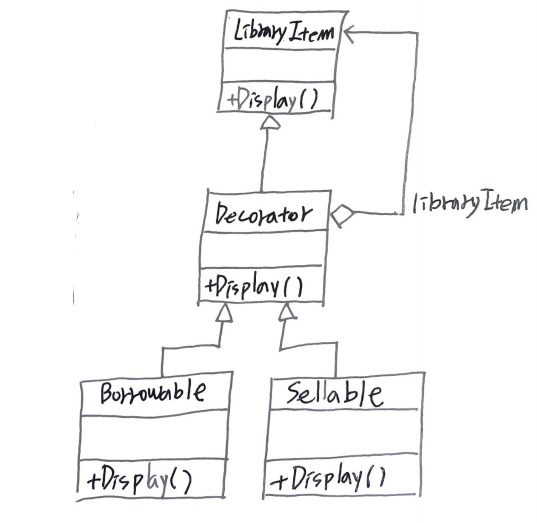 LibraryItem
+Display()
Decorator
libraryItem
+Display()
Borrowable
Sellable
+Display()
+Display()